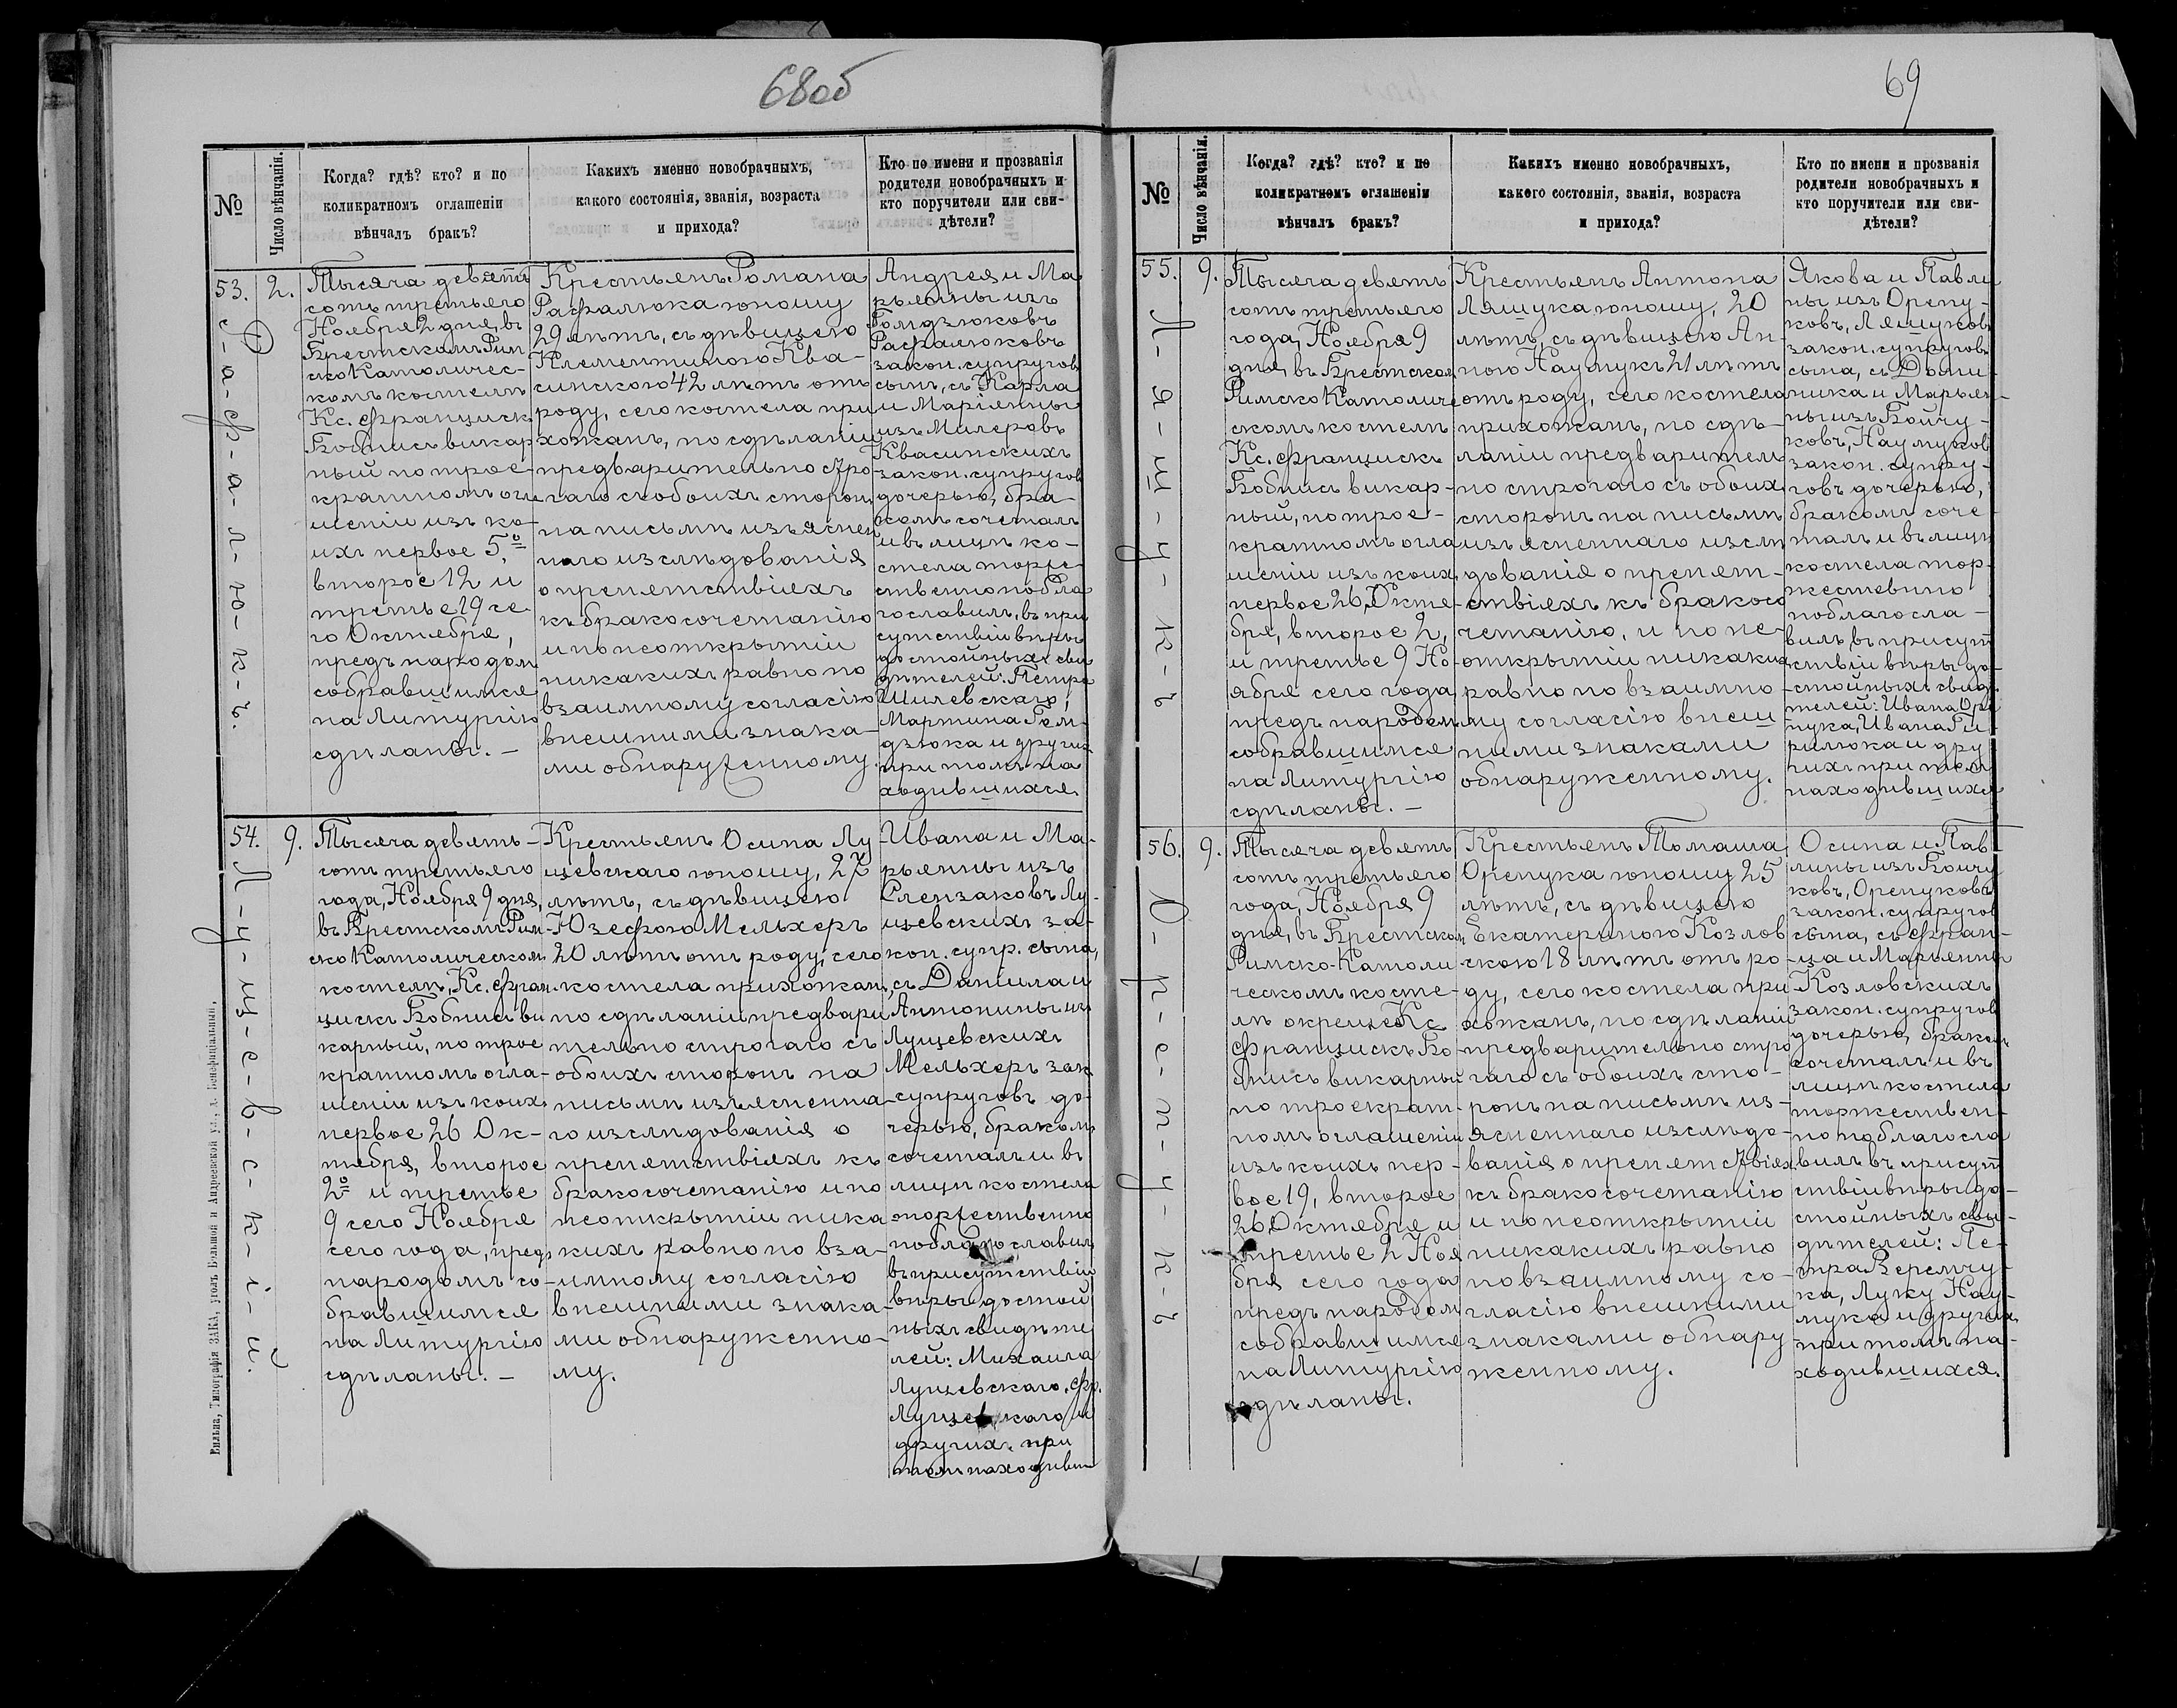 68об
№
Число вѣнчанія.
Когда? гдѣ? кто? и по
коликратномъ оглашеніи
вѣнчалъ бракъ?
Какихъ именно новобрачныхъ,
какого состоянія, званія, возраста
и прихода?
Кто по имени и прозванія
родители новобрачныхъ и
кто поручители или сви-
дѣтели?
53.
Р-а-ф-а-л-ю-к-ъ.
2.
Тысяча девять
сотъ третьяго
Ноября 2 дня, въ
Брестскомъ Рим
ско Католичес-
комъ костелѣ
Кс. Францискъ
викар
ный по трое-
кратномъ огла
шеніи изъ ко-
ихъ первое 5,º
второе 12 и
третье 19 се
го Октября,
предъ народомъ
собравшимся
на Литургію
сдѣланы. –
Крестьянъ Романа
Рафалюка юношу
29 лѣтъ, съ дѣвицею
Клементиною Ква-
синскою 42 лѣтъ отъ
роду, сего костела при
хожанъ, по сдѣланіи
предварительно стро
гаго съ обоихъ сторонъ
на письмѣ изъяснен
наго изслѣдованія
о препятствіяхъ
къ бракосочетанію
и по неоткрытіи
никакихъ равно по
взаимному согласію
внешними знака-
ми обнаруженному.
Андрея и Ма
рьянны изъ
Гомдзюковъ
Рафалюковъ
закон. супруговъ
сынъ, съ Карла
и Маріянны
изъ Милеровъ
Квасинскихъ
закон. супруговъ
дочерью, бра-
комъ сочеталъ
и въ лицѣ ко-
стела торже-
ственно побла
гословилъ, въ при
сутствіи вѣры
достойныхъ сви
дѣтелей: Петра
Шилевскаго,
Мартина Гом-
дзюка и другихъ
при томъ на
ходившихся.
54.
Л-у-щ-е-в-с-к-і-й.
9.
Тысяча девять-
сотъ третьяго
года, Ноября 9 дня,
въ Брестскомъ Рим-
ско Католическомъ
костелѣ, Кс. Фран-
цискъ ви
карный, по трое
кратномъ огла-
шеніи изъ коихъ
первое 26 Ок-
тября, второе
2º и третье
9 сего Ноября
сего года, предъ
народомъ со-
бравшимся
на Литургію
сдѣланы. –
Крестьянъ Осипа Лу
щевскаго юношу, 27
лѣтъ, съ дѣвицею
Юзефою Мельхеръ
20 лѣтъ отъ роду, сего
костела прихожанъ,
по сдѣланіи предвари
тельно строгаго съ
обоихъ сторонъ на
письмѣ изъясненна-
го изслѣдованія о
препятствіяхъ къ
бракосочетанію и по
неоткрытіи ника
кихъ равно по вза-
имному согласію
внешними знака-
ми обнаруженно-
му.
Ивана и Ма-
рьянны изъ
Слензаковъ Лу-
щевскихъ за-
кон. супр. сына,
съ Даніила и
Антонины изъ
Лущевскихъ
Мельхеръ зак
супруговъ до-
черью, бракомъ
сочеталъ и въ
лицѣ костела
торжественно
поблагословилъ
въ присутствіи
вѣры достой
ныхъ свидѣте
лей: Михаила
Лущевскаго, Фр.
Лущевскаго и
другихъ при
томъ находивш
Вильна, Типографія ЗАКА, уголъ Большой и Андреевской ул., д. Бенефиціальный.
69
№
Число вѣнчанія.
Когда? гдѣ? кто? и по
коликратномъ оглашеніи
вѣнчалъ бракъ?
Какихъ именно новобрачныхъ,
какого состоянія, званія, возраста
и прихода?
Кто по имени и прозванія
родители новобрачныхъ и
кто поручители или сви-
дѣтели?
55.
Л-я-щ-у-к-ъ
9.
Тысяча девять
сотъ третьяго
года, Ноября 9
дня, въ Брестскомъ
Римско Католиче
скомъ костелѣ
Кс. Францискъ
викар-
ный, по трое-
кратномъ огла
шеніи изъ коихъ
первое 26, Октя-
бря, второе 2,
и третье 9 Но-
ября сего года
предъ народомъ
собравшимся
на Литургію
сдѣланы. –
Крестьянъ Антона
Лящука юношу, 20
лѣтъ, съ дѣвицею Ан-
ною Наумукъ 21 лѣтъ
отъ роду, сего костела
прихожанъ, по сдѣ-
ланіи предваритель
но строгаго съ обоихъ
сторонъ на письмѣ
изъясненнаго изслѣ
дованія о препят-
ствіяхъ къ бракосо
четанію, и по не-
открытіи никакихъ
равно по взаимно
му согласію внеш
ними знаками
обнаруженному.
Якова и Павли
ны изъ Орепу-
ковъ, Лящуковъ
закон. супруговъ
сына, съ Доми-
ника и Марьян-
ны изъ Бойчу-
ковъ, Наумуковъ
закон. супру-
говъ дочерью,
бракомъ соче-
талъ и въ лицѣ
костела тор-
жественно
поблагосло-
вилъ, въ присут
ствіи вѣры до-
стойныхъ свидѣ
телей: Ивана Оре
пука, Ивана Ги
рилюка и дру
гихъ при томъ
находившихся
56.
О-р-е-п-у-к-ъ
9.
Тысяча девять
сотъ третьяго
года, Ноября 9
дня, въ Брестскомъ
Римско-Католи
ческомъ косте-
лѣ Кс
Францискъ
викарный
по троекрат-
номъ оглашеніи
изъ коихъ пер-
вое 19, второе
26 Октября и
третье 2 Ноя
бря сего года
предъ народомъ
собравшимся
на Литургію
сдѣланы.
Крестьянъ Томаша
Орепука юношу 25
лѣтъ, съ дѣвицею
Екатериною Козлов
скою 18 лѣтъ отъ ро
ду, сего костела при
хожанъ, по сдѣланіи
предварительно стро
гаго съ обоихъ сто-
ронъ на письмѣ из-
ясненнаго изслѣдо-
ванія о препятствіяхъ
къ бракосочетанію
и по неоткрытіи
никакихъ равно
по взаимному со-
гласію внешними
знаками обнару
женному.
Осипа и Пав
лины изъ Бойчу
ковъ, Орепуковъ
закон. супругов
сына, съ Фран-
ца и Марьянны
Козловскихъ
закон. супругов
дочерью, бракомъ
сочеталъ и въ
лицѣ костела
торжествен-
но поблагосло
вилъ въ присут
ствіи вѣры до-
стойныхъ сви-
дѣтелей: Пе-
тра Веремчу-
ка, Луку Нау-
мука и другихъ
при томъ на-
ходившихся.